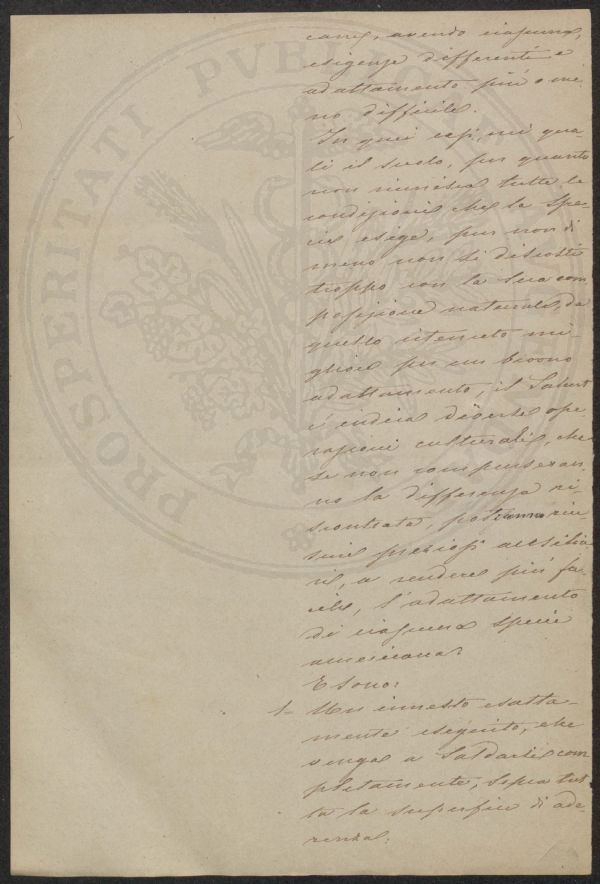 cane, avendo ciascuna,
esigenze differenti e
adattamento più o me-
no difficile.
In quei casi, nei qua-
li il suolo, per quanto
non riunisca tutte le
condizioni che la spe-
cie esige, pur non di
meno non si discosti
troppo con la sua com
posizione naturale, da
quello ritenuto mi-
gliore per un buono
adattamento, il Sahut
indica diverse ope-
razioni culturali, che
se non compenseran-
no la differenza ri-
scontrata, potranno riu-
scire preziosi ausilia-
ri, a rendere più fa-
cile, l'adattamento
di ciascuna specie
americana.
E sono:
1- Un innesto esatta-
mente eseguito, che
venga a saldarsi com
pletamente, sopra tut
ta la superficie di ade-
renza.
PROSPERITATI PVBLICAE